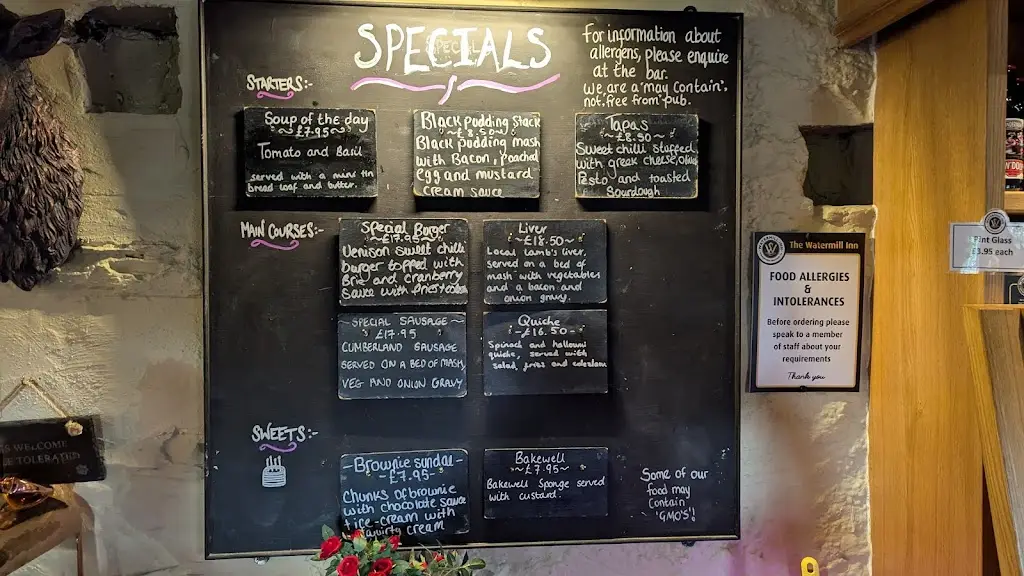 SPECIALS
For information about
allergens, please enquire
at the bar.
we are a 'may contain',
not 'free from' pub.
STARTERS:-
Soup of the day
~£7.95~
Tomato and Basil
served with a mini tin
bread loaf and butter.
Black pudding stack
~£8.50~
Black pudding mash
with Bacon, Poached
egg and mustard
cream sauce
Tapas
~£8.90~
Sweet chilli stuffed
with greek cheese, Olives
Pesto and toasted
Sourdough
MAIN COURSES:-
Special Burger
~£17.95~
Venison sweet chilli
burger topped with
Brie and cranberry
Sauce with fries+coleslaw
Liver
~£18.50~
Local Lamb's liver,
Served on a bed of
mash with vegetables
and a bacon and
onion gravy.
SPECIAL SAUSAGE
£17.95
CUMBERLAND SAUSAGE
SERVED ON A BED OF MASH,
VEG AND ONION GRAVY
Quiche
-£16.50-
Spinach and halloumi
quiche, served with
salad, fries and coleslaw
SWEETS:-
-Brownie sundai-
£7.95~
Chunks of brownie
with chocolate sauce
+ ice-cream with
squirty cream
Bakewell
~£7.95~
Bakewell Sponge served
with custard.
Some of our
food may
contain
'GMO'S'!
The Watermill Inn
FOOD ALLERGIES
&
INTOLERANCES
Before ordering please
speak to a member
of staff about your
requirements
Thank you
Pint Glass
£3.95 each
WELCOME
TOLERATED